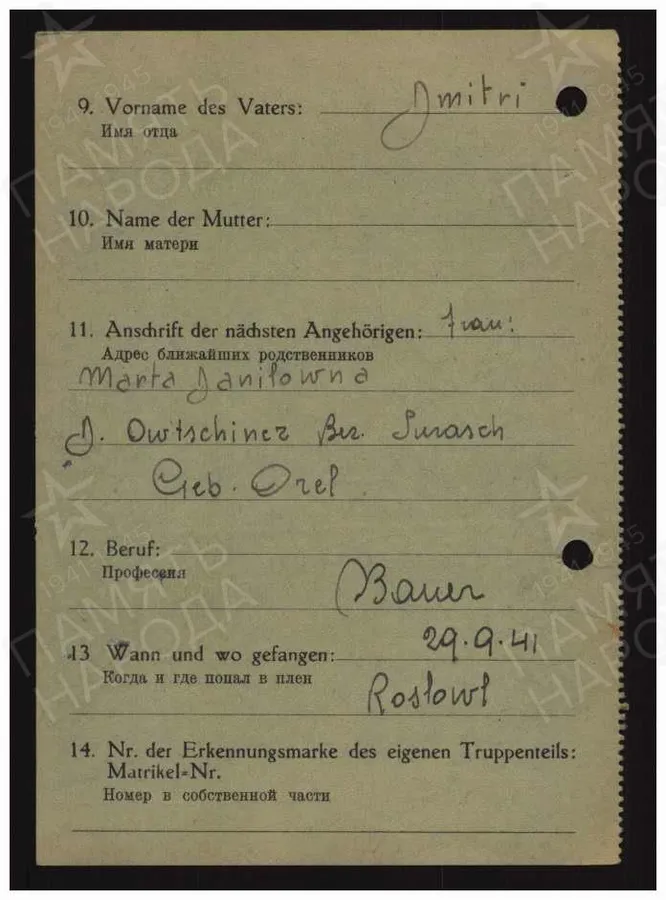 9. Vorname des Vaters: Dmitri
Имя отца
10. Name der Mutter:
Имя матери
11. Anschrift der nächsten Angehörigen: Frau:
Адрес ближайших родственников
Marta Danilowna
D. Owtschinez Bez. Surasch
Geb. Orel
12. Beruf:
Профессия
Bauer
13 Wann und wo gefangen: 29.9.41
Когда и где попал в плен
Roslowl
14. Nr. der Erkennungsmarke des eigenen Truppenteils:
Matrikel=Nr.
Номер в собственной части
ПАМЯТЬ
НАРОДА
1941-1945